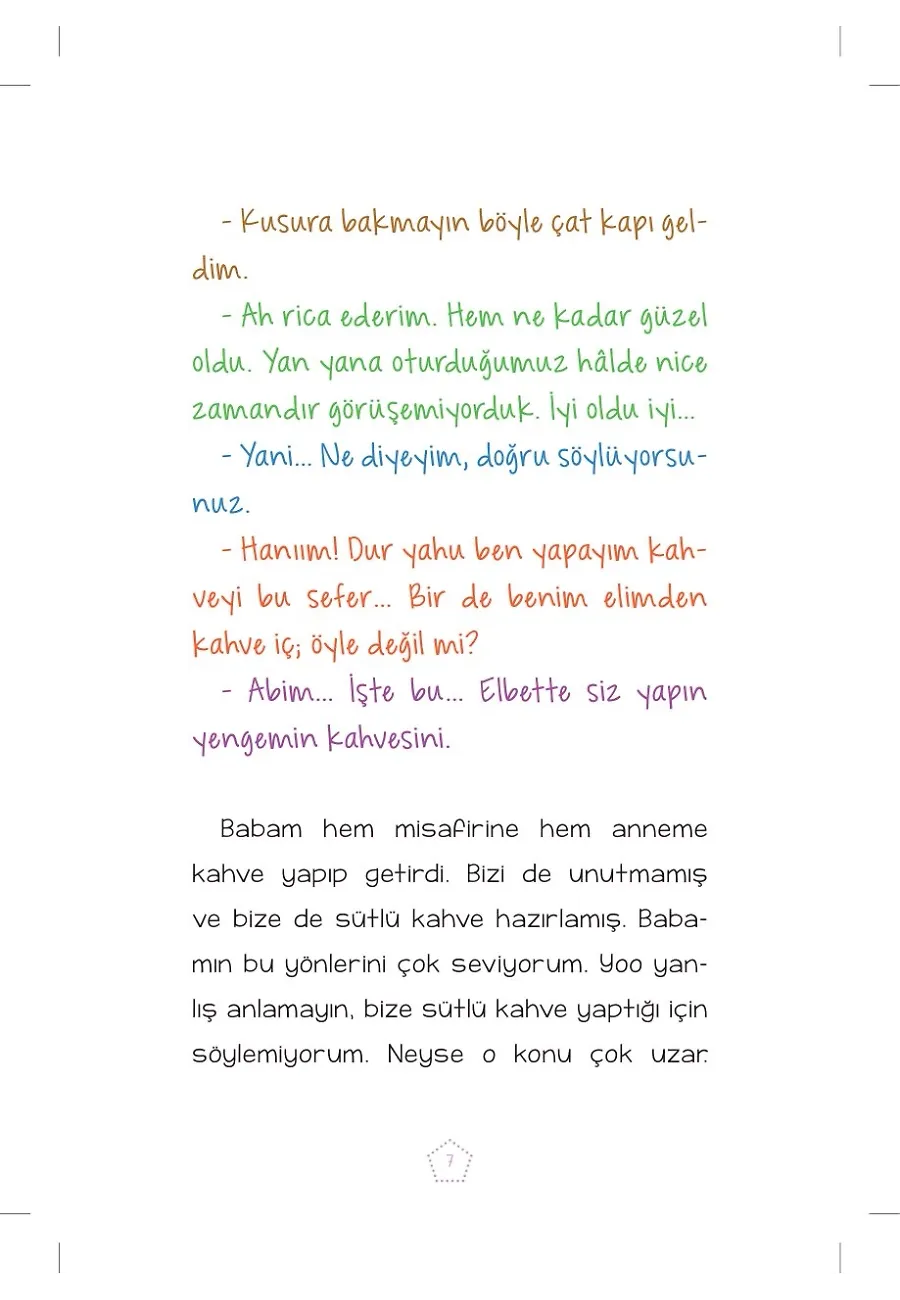 - Kusura bakmayın böyle çat kapı gel-
dim.
- Ah rica ederim. Hem ne kadar güzel
oldu. Yan yana oturduğumuz hâlde nice
zamandır görüşemiyorduk. İyi oldu iyi...
- Yani... Ne diyeyim, doğru söylüyorsu-
nuz.
- Hanıım! Dur yahu ben yapayım kah-
veyi bu sefer... Bir de benim elimden
kahve iç; öyle değil mi?
- Abim... İşte bu... Elbette siz yapın
yengemin kahvesini.
Babam hem misafirine hem anneme
kahve yapıp getirdi. Bizi de unutmamış
ve bize de sütlü kahve hazırlamış. Baba-
mın bu yönlerini çok seviyorum. Yoo yan-
lış anlamayın, bize sütlü kahve yaptığı için
söylemiyorum. Neyse o konu çok uzar.
7